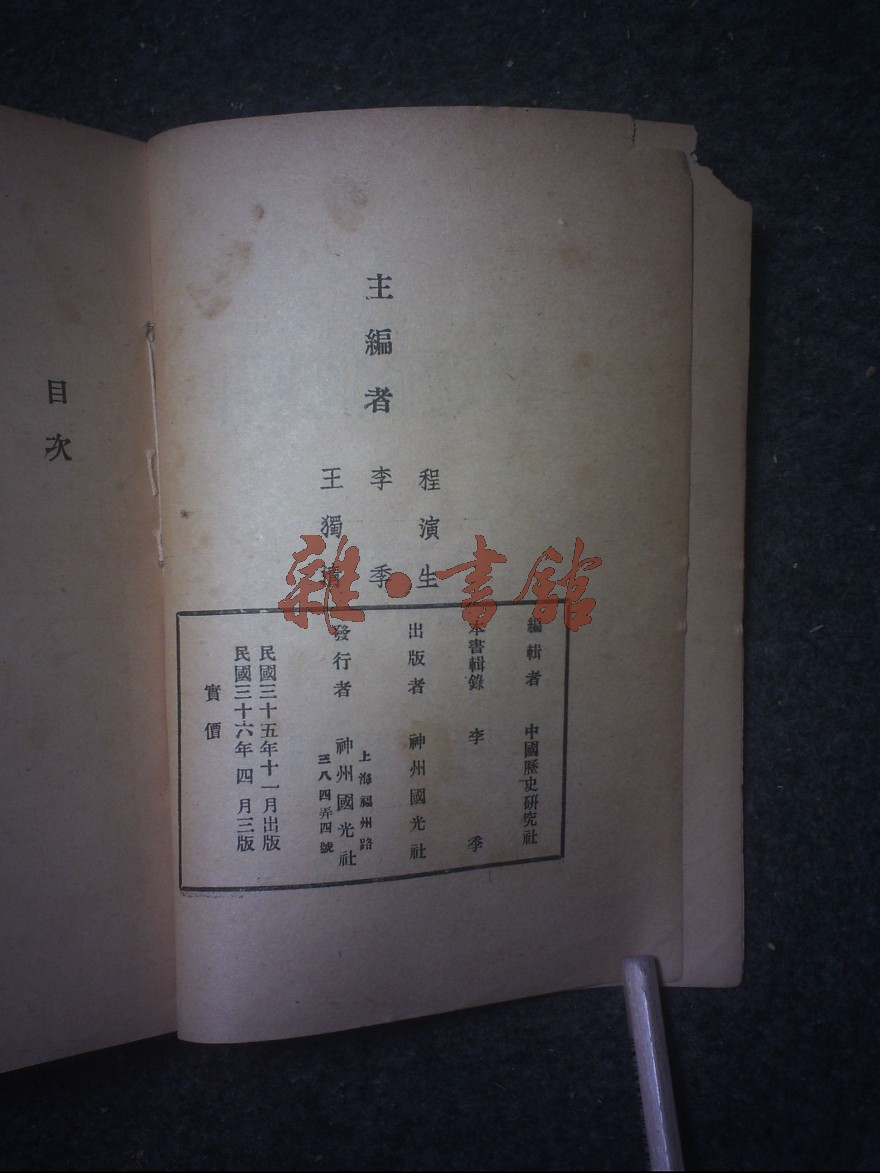 主編者
程演生
李季
王獨清
編輯者 中國歷史研究社
本書輯錄 李季
出版者 神州國光社
發行者 神州國光社
上海福州路
三八四弄四號
民國三十五年十一月出版
民國三十六年四月三版
實價
目次
雜·書館